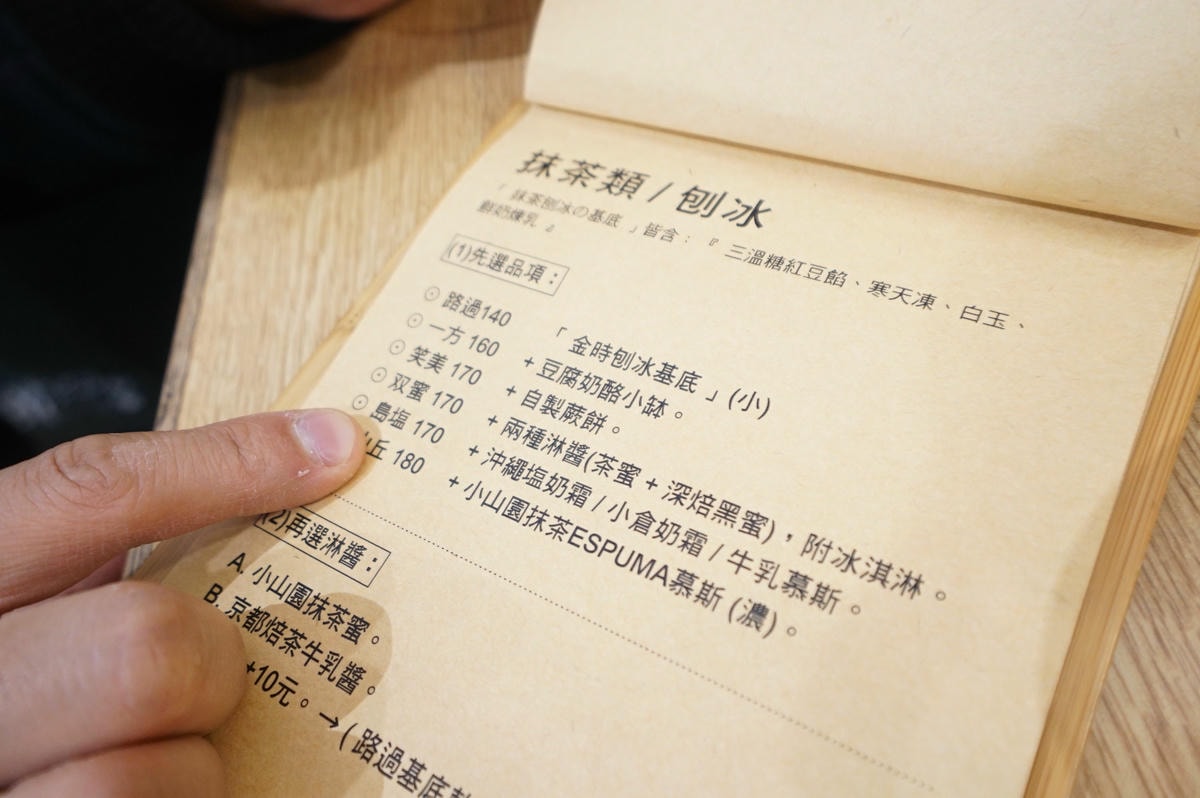 抹茶類 / 刨冰
「 抹茶刨冰の基底 」皆含：『 三溫糖紅豆餡、寒天凍、白玉、
鮮奶煉乳 』
(1)先選品項：
⊙ 路過140 「 金時刨冰基底 」(小)
⊙ 一方 160 + 豆腐奶酪小缽。
⊙ 笑美 170 + 自製蕨餅。
⊙ 双蜜 170 + 兩種淋醬(茶蜜 + 深焙黑蜜)，附冰淇淋。
⊙ 島塩 170 + 沖繩塩奶霜 / 小倉奶霜 / 牛乳慕斯。
丘 180 + 小山園抹茶ESPUMA慕斯 (濃)。
(2)再選淋醬：
A. 小山園抹茶蜜。
B. 京都焙茶牛乳醬。
+10元。→ ( 路過基底